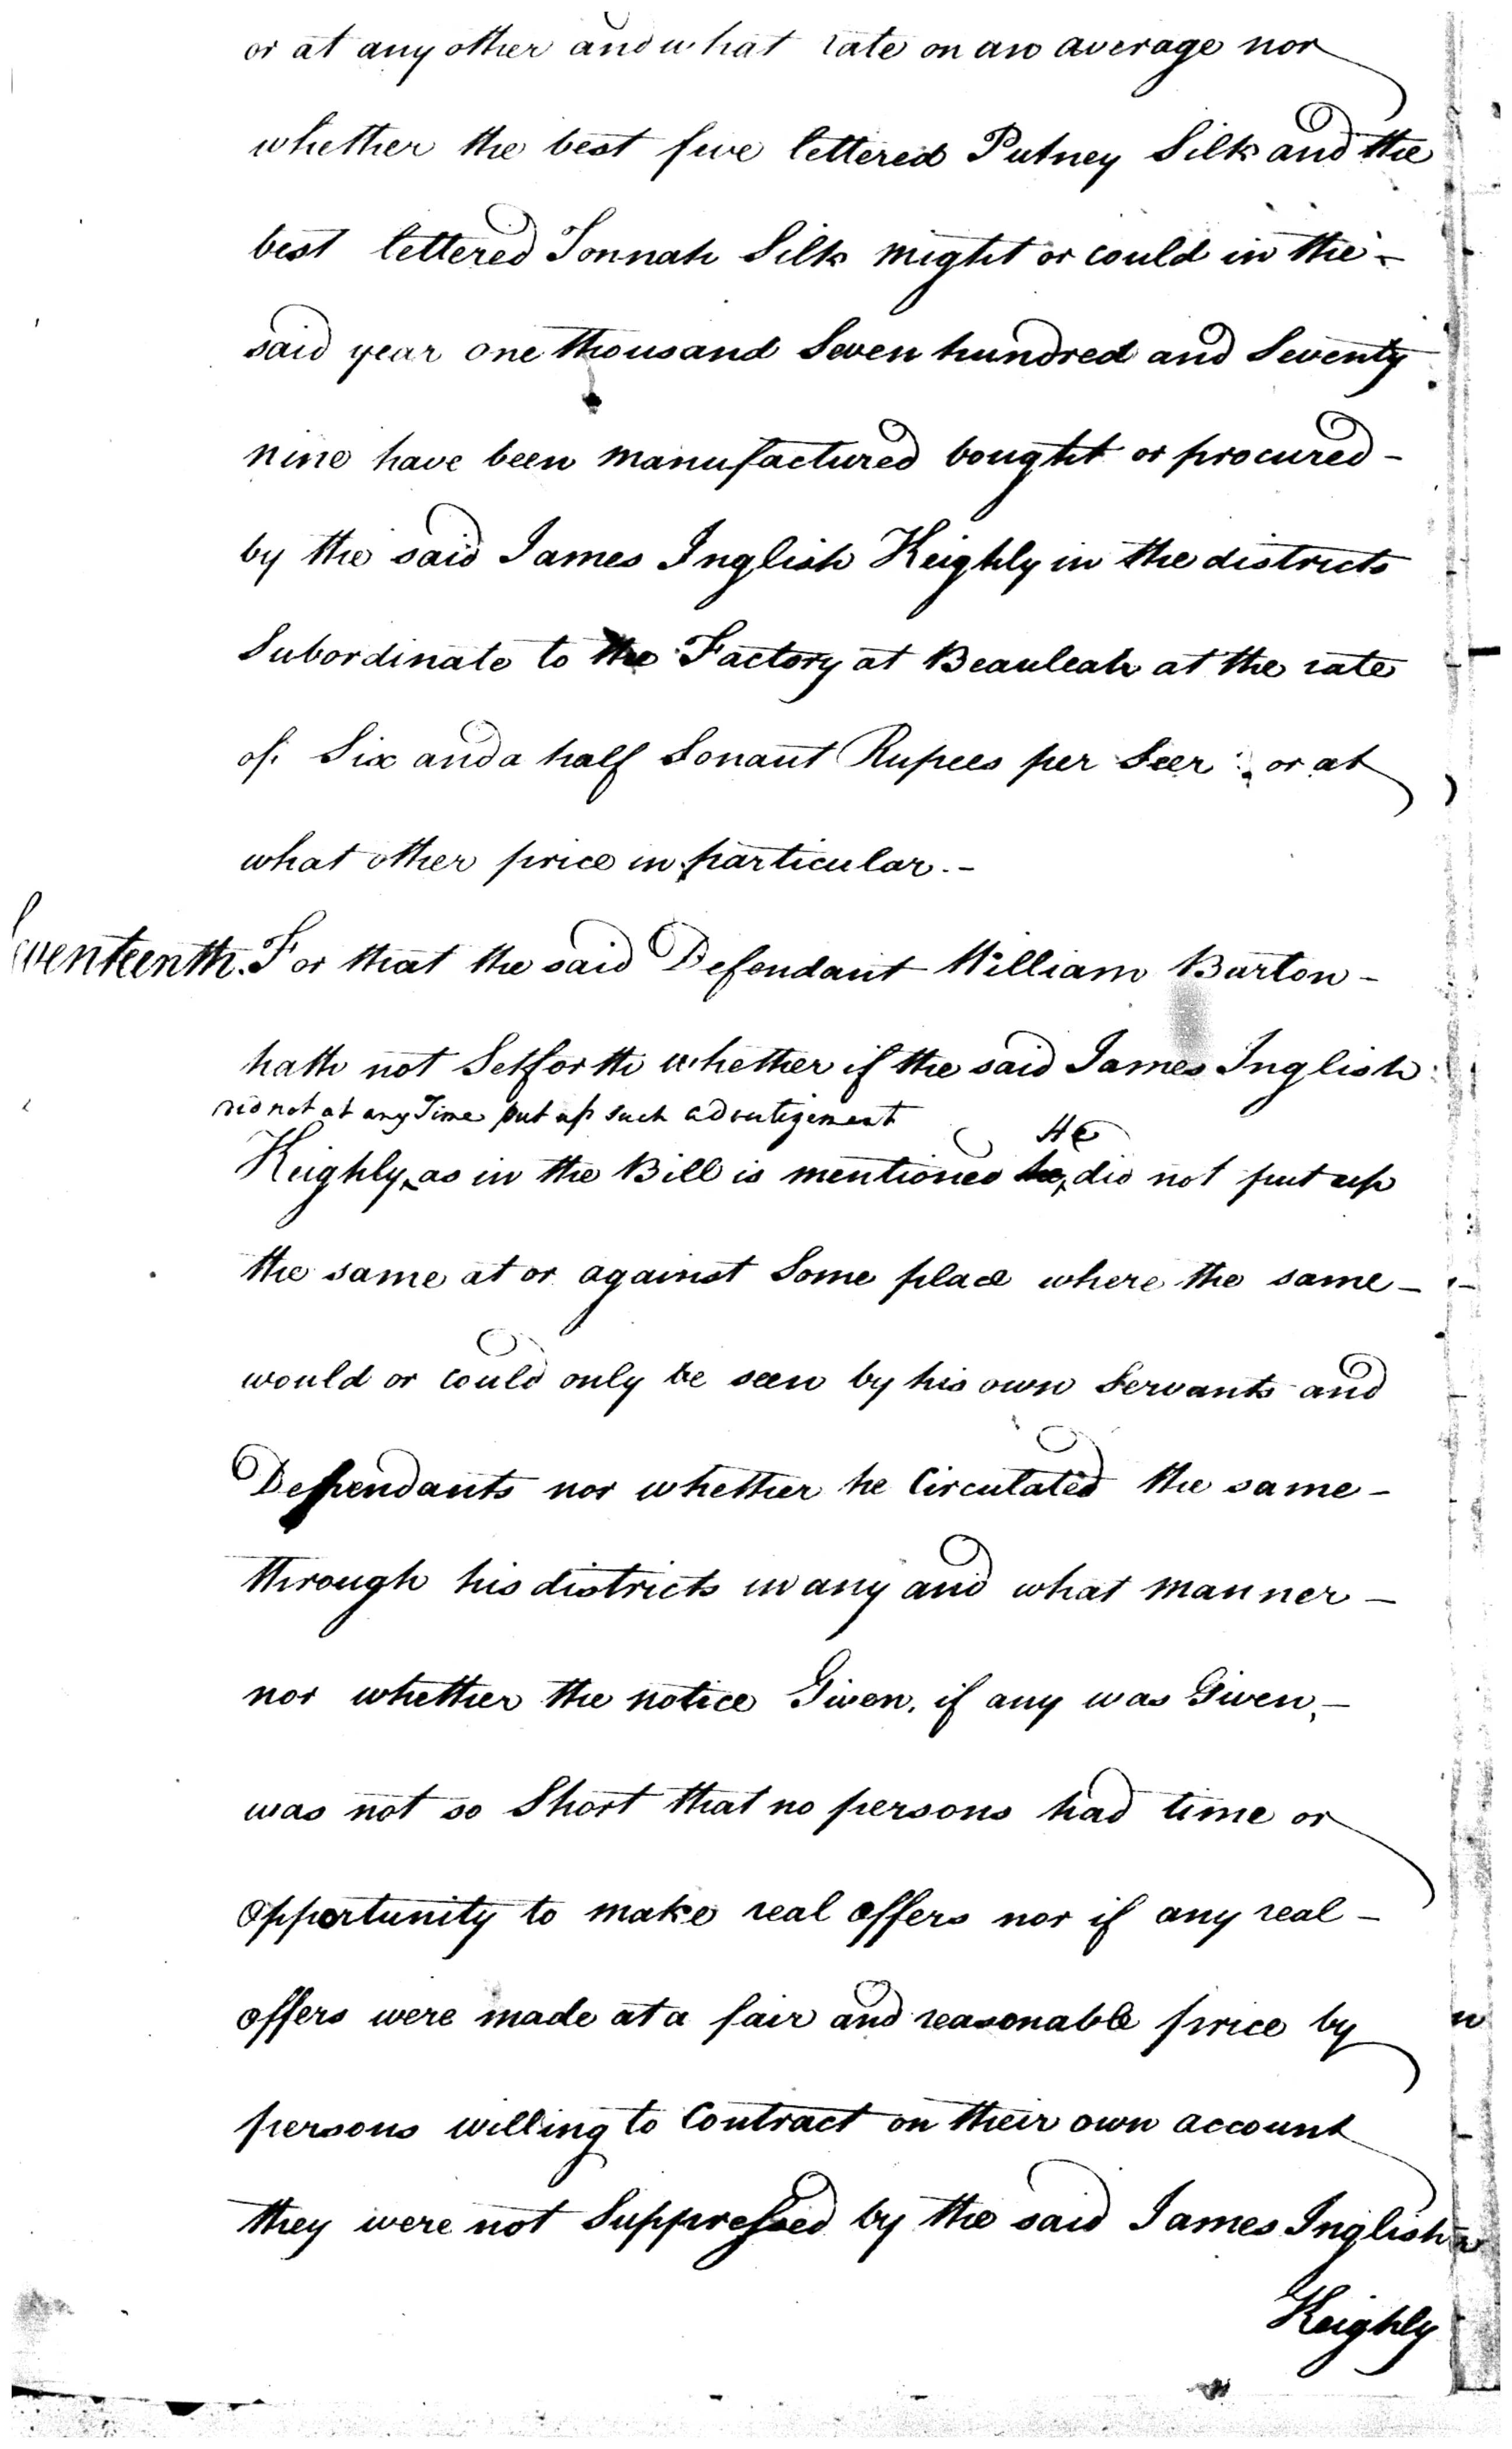 or at any other and what rate on an average nor
whether the best five lettered Putney Silk and the
best lettered Sonnah Silk might or could in the -
said year one thousand Seven hundred and Seventy
nine have been manufactured bought or procured -
by the said James Inglish Keighly in the districts
Subordinate to the Factory at Beauleah at the rate
of Six and a half Sonaut Rupees per Seer or at
what other price in particular. -
Seventeenth. For that the said Defendant William Barton -
hath not Setforth whether if the said James Inglish
did not at any Time put up such advertizement
He
Keighly as in the Bill is mentioned he did not put up
the same at or against Some place where the same -
would or could only be seen by his own Servants and
Dependants nor whether he Circulated the same -
through his districts in any and what manner -
nor whether the notice Given, if any was Given, -
was not so Short that no persons had time or
opportunity to make real offers nor if any real -
offers were made at a fair and reasonable price by
persons willing to Contract on their own account
they were not Suppressed by the said James Inglish
Keighly